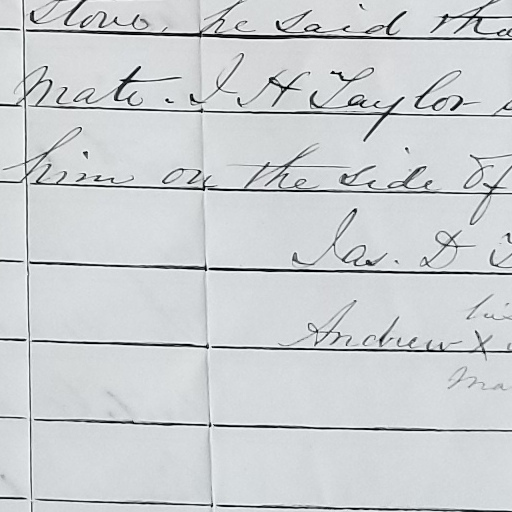 stove, he said tha
Mate. J H Taylor
him on the side of
Jas. D T
his
Andrew X
Ma